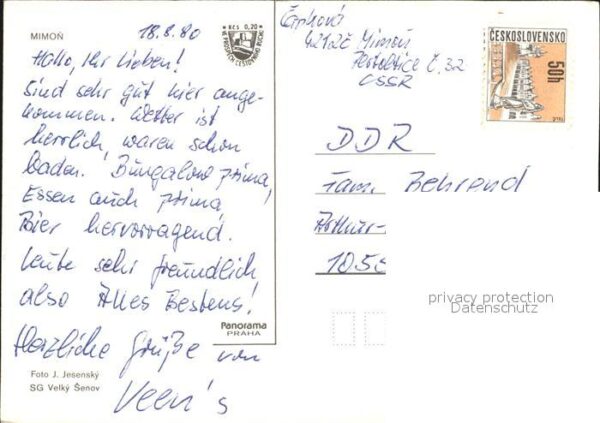 MIMOŇ
18.8.80
Kčs 0,20
VE PROSPĚCH CESTOVNÍHO RUCHU
Hallo, Ihr Lieben!
Sind sehr gut hier ange-
kommen. Wetter ist
herrlich, waren schon
baden. Bungalow prima,
Essen auch prima
Bier hervorragend.
Leute sehr freundlich
also Alles Bestens!
Herzliche Grüße von
Panorama
PRAHA
Foto J. Jesenský
SG Velký Šenov
Mimoň
Č. 32
ČSSR
ČESKOSLOVENSKO
50h
DDR
Fam. Behrend
Arthur-
privacy protection
Datenschutz